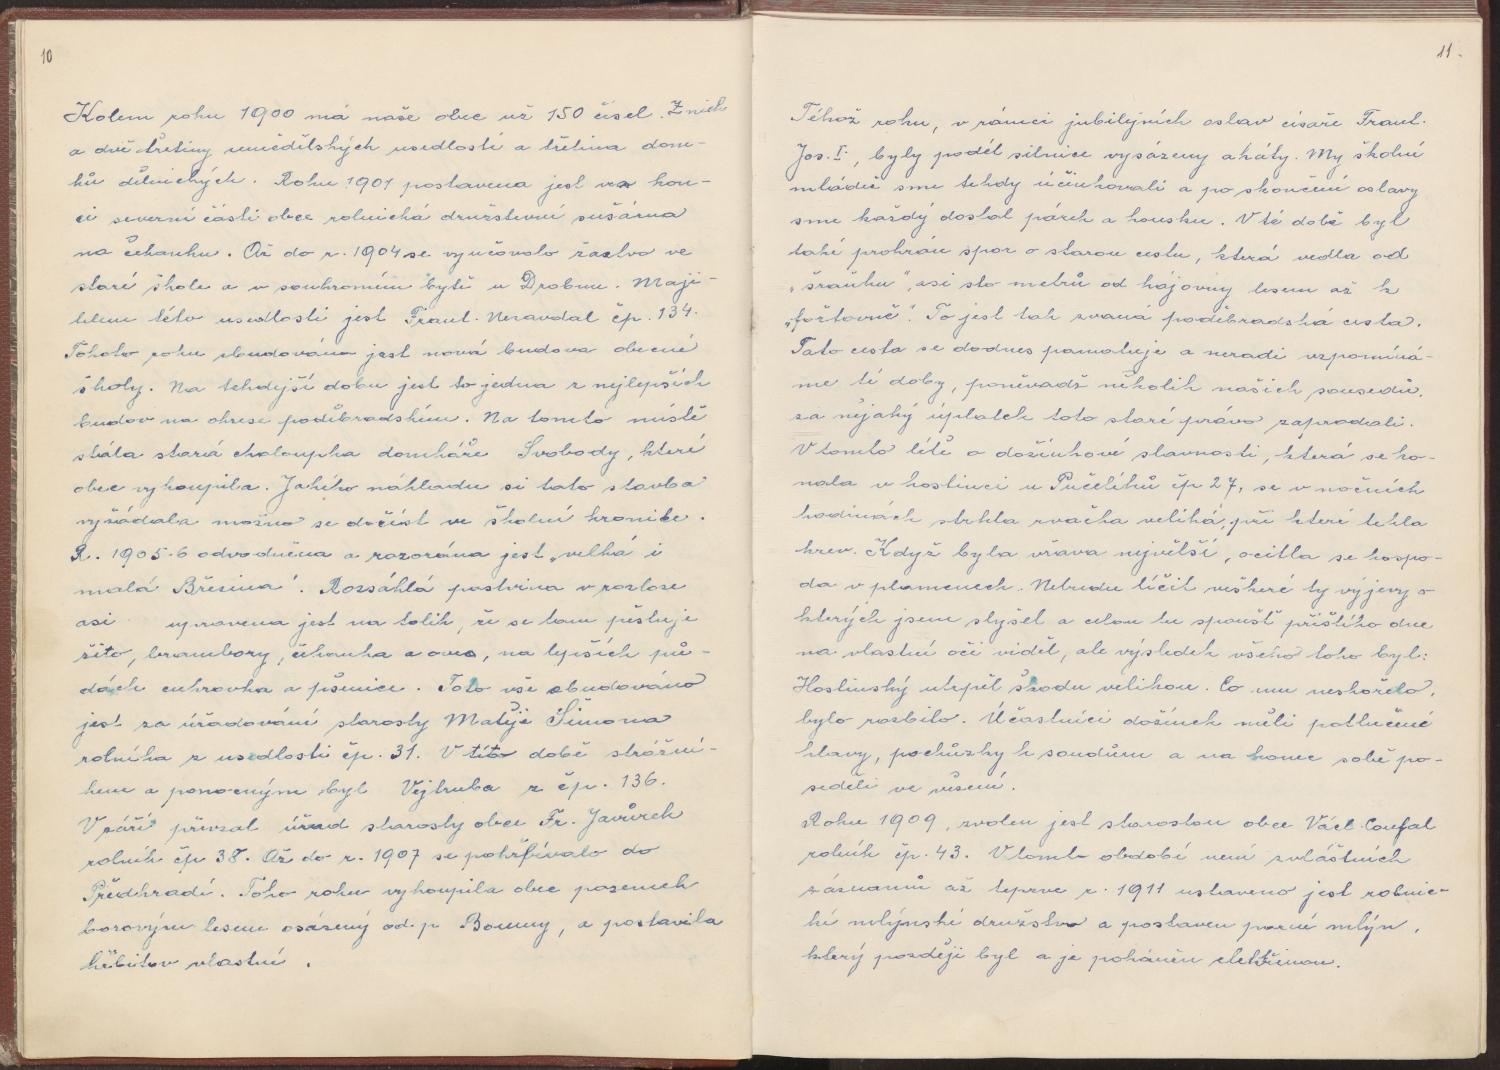 10
Kolem roku 1900 má naše obec už 150 čísel. Z nich
a dvě třetiny zemědělských usedlostí a třetina dom-
ků dělnických. Roku 1901 postavena jest na kon-
ci severní části obce rolnická družstevní sušárna
na čekanku. Až do r. 1904 se vyučovalo žactvo ve
staré škole a v soukromém bytě u Drobnu. Maji-
telem této usedlosti jest Frant. Neravdal čp. 134.
Tohoto roku zbudována jest nová budova obecné
školy. Na tehdejší dobu jest to jedna z nejlepších
budov na okrese poděbradském. Na tomto místě
stála stará chaloupka domkáře Svobody, které
obec vykoupila. Jakého nákladu si tato stavba
vyžádala možno se dočíst ve školní kronice.
R. 1905-6 odvodněna a rozorána jest „velká i
malá Březina". Rozsáhlá pastvina v rozloze
asi upravena jest na tolik, že se tam pěstuje
žito, brambory, čekanka a oves, na lepších pů-
dách cukrovka a pšenice. Toto vše zbudováno
jest za úřadování starosty Matěje Šimona
rolníka z usedlosti čp. 31. V této době strážní-
kem a ponocným byl Vejtruba z čp. 136.
V září převzal úřad starosty obce Fr. Javůrek
rolník čp 38. Až do r. 1907 se pohřbívalo do
Předhradí. Toho roku vykoupila obec pozemek
borovým lesem osázený od p. a postavila
hřbitov vlastní.
11.
Téhož roku, v rámci jubilejních oslav císaře Frant.
Jos. I., byly podél silnice vysázeny akáty. My školní
mládež sme tehdy účinkovali a po skončení oslavy
sme každý dostal párek a housku. V té době byl
také prohrán spor o starou cestu, která vedla od
„šraňku", asi sto metrů od hájovny lesem až k
„fořtovně". To jest tak zvaná poděbradská cesta.
Tato cesta se dodnes pamatuje a neradi vzpomíná-
me té doby, poněvadž několik našich sousedů,
za nějaký úplatek toto staré právo zaprodali.
V tomto létě o dožínkové slavnosti, která se ko-
nala v hostinci u Pučelíků čp 27, se v nočních
hodinách strhla rvačka veliká, při které tekla
krev. Když byla vřava největší, ocitla se hospo-
da v plamenech. Nebudu líčit veškeré ty výjevy o
kterých jsem slyšel a celou tu spoušť příštího dne
na vlastní oči viděl, ale výsledek všeho toho byl:
Hostinský utrpěl škodu velikou. Co mu neshořelo,
bylo rozbito. Účastníci dožínek měli potlučené
hlavy, pochůzky k soudům a na konec sobě po-
seděli ve vězení.
Roku 1909, zvolen jest starostou obce Václ. Coufal
rolník čp. 43. V tomto období není zvláštních
záznamů až teprve r. 1911 ustaveno jest rolnic-
ké mlýnské družstvo a postaven parní mlýn,
který později byl a je poháněn elektřinou.